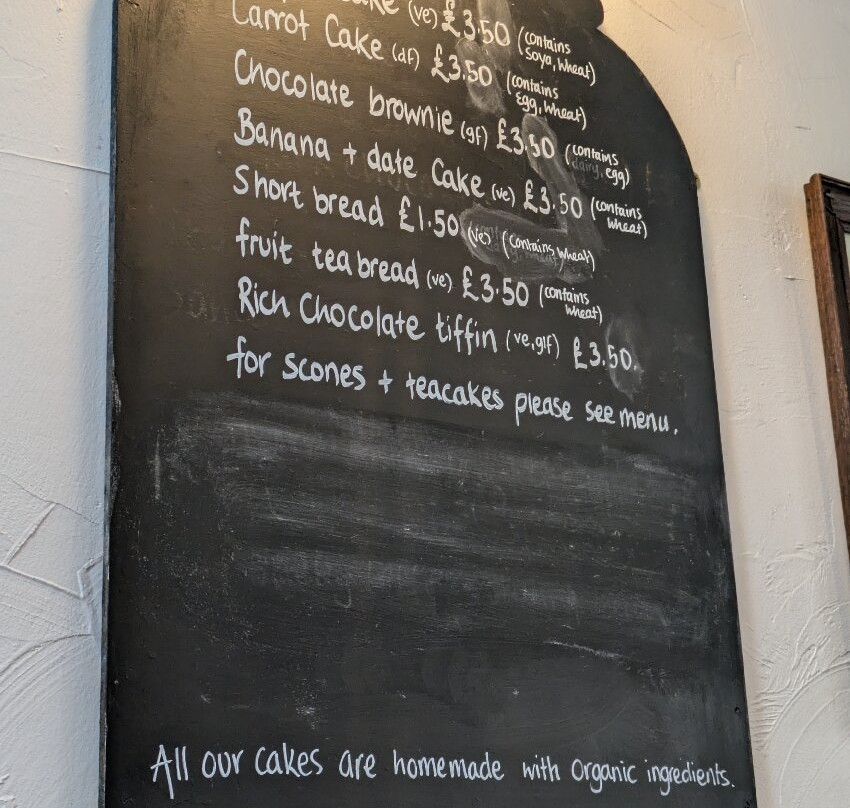 Cake (ve) £3.50 (contains soya, wheat)
Carrot Cake (df) £3.50 (contains Egg, wheat)
Chocolate brownie (gf) £3.50 (contains dairy, egg)
Banana + date Cake (ve) £3.50 (contains wheat)
Short bread £1.50 (ve) (contains wheat)
fruit teabread (ve) £3.50 (contains wheat)
Rich Chocolate tiffin (ve, glf) £3.50.
for scones + teacakes please see menu.
All our cakes are homemade with organic ingredients.